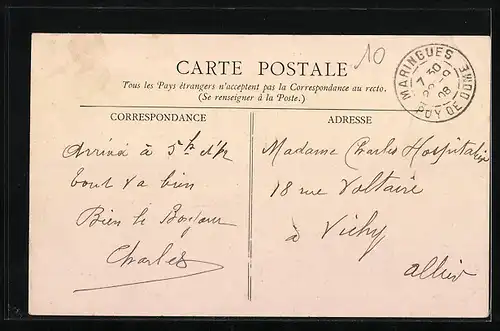 10
CARTE POSTALE
Tous les Pays étrangers n'acceptent pas la Correspondance au recto.
(Se renseigner à la Poste.)
MARINGUES
7 30
PUY DE DOME
CORRESPONDANCE
ADRESSE
Arrivé à 5h
tout va bien
Bien le Bonjour
Charles
Madame Charles Hospitalier
18 rue Voltaire
à Vichy
Allier